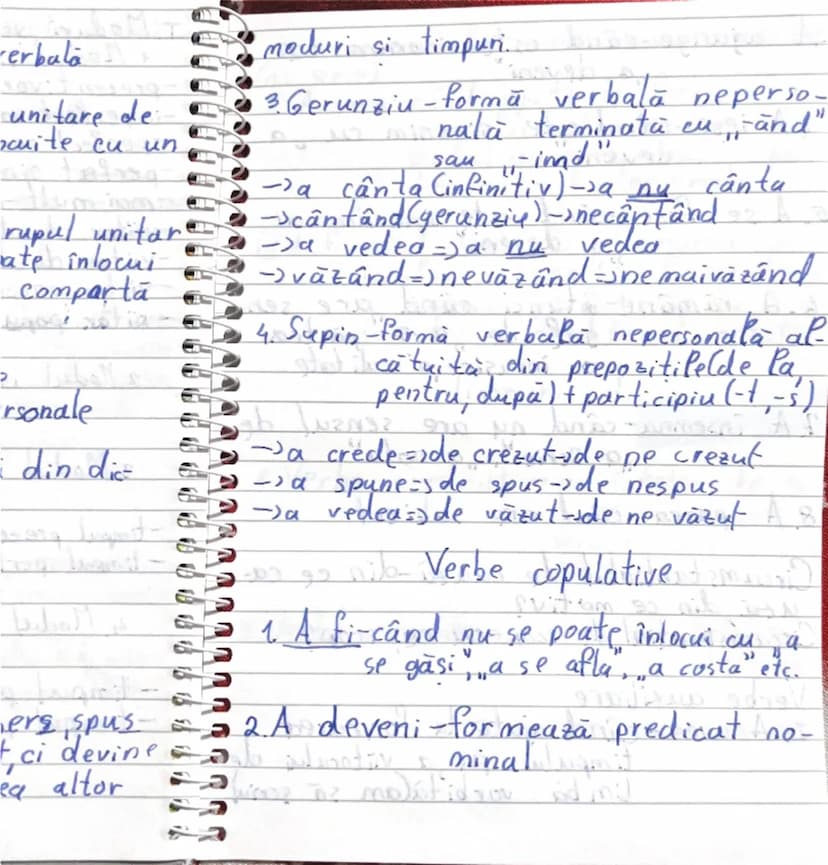 erbală
unitare de
cuite cu un
rupul unitar
ate înlocui
comportă
rsonale
i din dic-
erg, spus
t, ci devine
ea altor
moduri și timpuri.
3. Gerunziu - formă verbală neperso-
nală terminată cu „-ând"
sau „-ind"
-> a cânta (infinitiv) -> a nu cânta
-> cântând (gerunziu) -> necântând
-> a vedea => a nu vedea
-> văzând => nevăzând => nemaivăzând
4. Supin - formă verbală nepersonală al-
cătuită din prepozițile (de la,
pentru, după) + participiu (-t, -s)
-> a crede => de crezut -> de ne crezut
-> a spune => de spus -> de nespus
-> a vedea => de văzut -> de ne văzut
Verbe copulative
1. A fi - când nu se poate înlocui cu „a
se găsi", „a se afla", „a costa" etc.
2. A deveni - formează predicat no-
minal